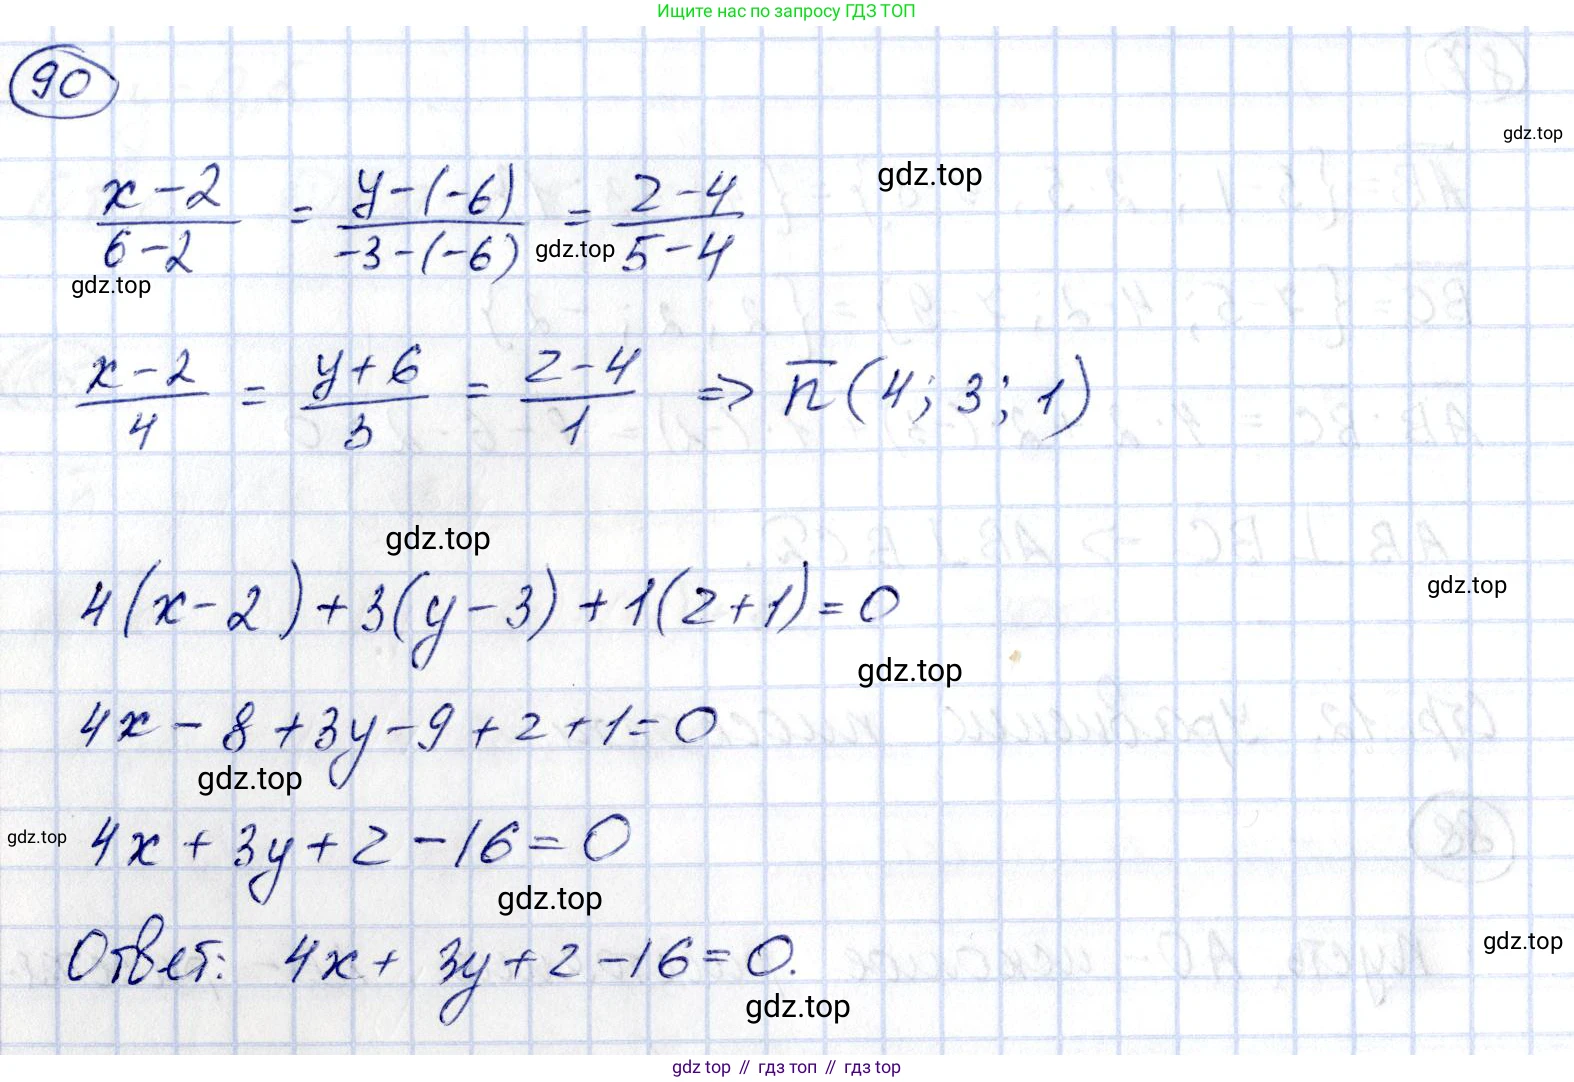 Ищите нас по запросу ГДЗ ТОП
90
gdz.top
gdz.top
(x-2)/(6-2) = (y-(-6))/(-3-(-6)) = (z-4)/(5-4)
gdz.top
gdz.top
(x-2)/4 = (y+6)/3 = (z-4)/1 => n̅(4; 3; 1)
gdz.top
gdz.top
4(x-2)+3(y-3)+1(z+1)=0
gdz.top
4x-8+3y-9+z+1=0
gdz.top
gdz.top
4x+3y+z-16=0
gdz.top
Ответ: 4x+3y+z-16=0.
gdz.top
gdz.top
gdz top // гдз топ // gdz top